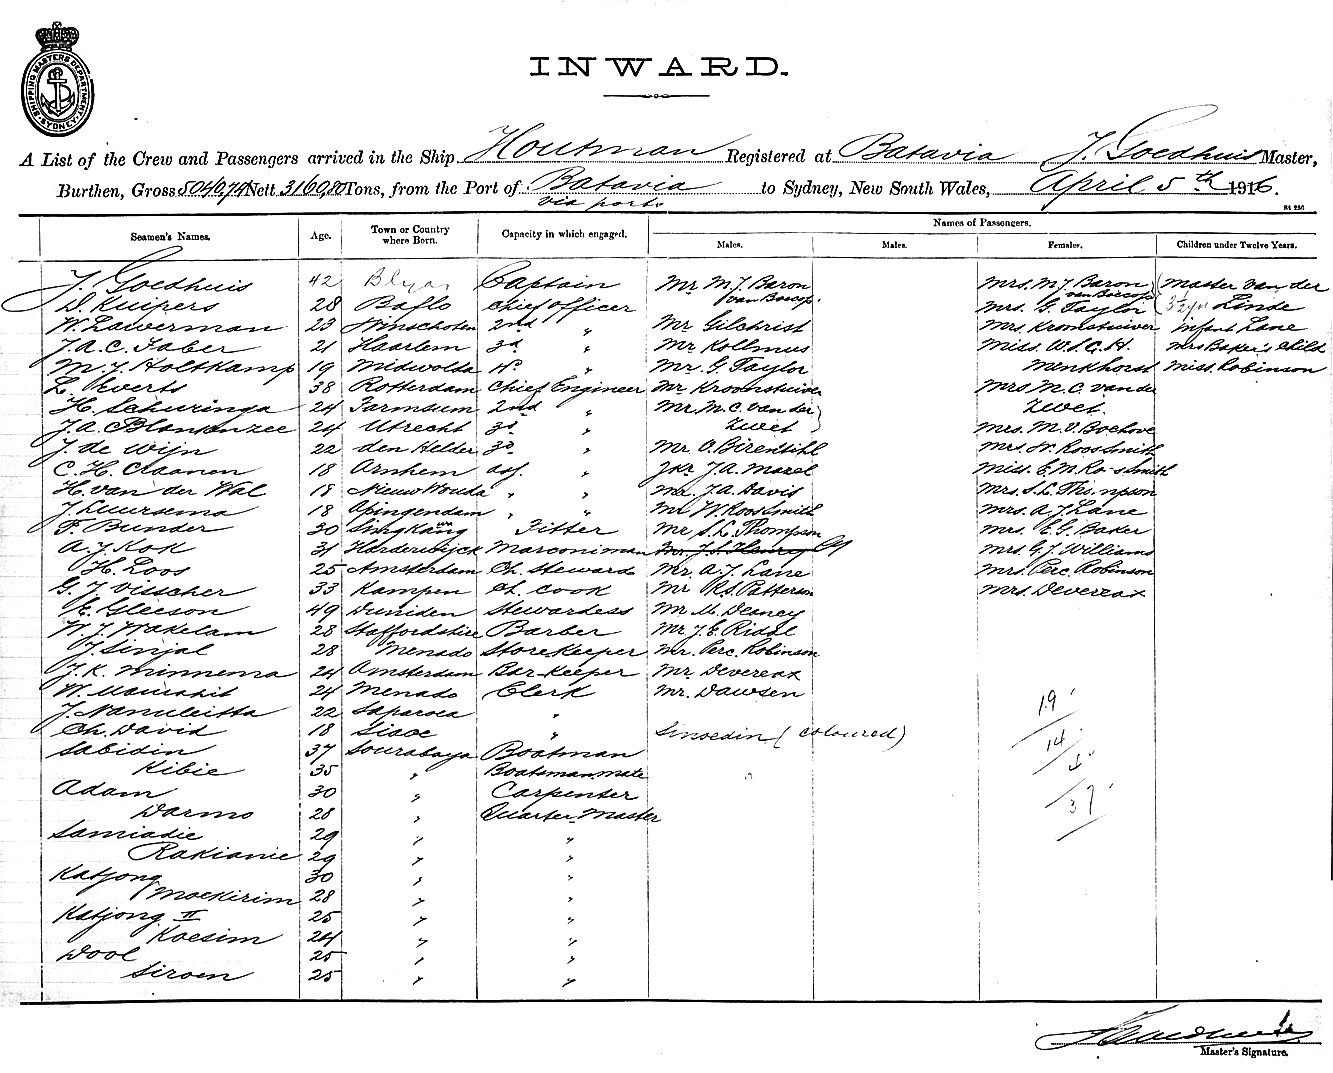 SHIPPING MASTERS DEPARTMENT
SYDNEY
INWARD.
A List of the Crew and Passengers arrived in the Ship Houtman Registered at Batavia J. Goedhuis Master,
Burthen, Gross 5040,74 Nett 3160,80 Tons, from the Port of Batavia to Sydney, New South Wales, April 5th 1916.
via ports
Seamen's Names. Age. Town or Country where Born. Capacity in which engaged. Names of Passengers.
Males. Males. Females. Children under Twelve Years.
J. Goedhuis 42 Captain Mr M. J. Baron Mrs. M. J. Baron Master van der
van Boecop. van Boecop
D. Kuipers 28 Baflo Chief Officer Mrs. G. Taylor 3½ yrs Linde
W. Lawerman 23 Winschoten 2nd " Mr Gilchrist Mrs. Kromstuiver Infant Lane
J. A. C. Faber 21 Haarlem 3d " Mr Kollmus Miss. W.S.G.H. Mrs Baker's Child
M. J. Holtkamp 19 Midwolda 4e " Mr. G. Taylor Menkhorst Miss. Robinson
L. Everts 38 Rotterdam Chief Engineer Mr Kroonstuiver Mrs M. C. van der
H. Schuringa 24 Farmsum 2nd " Mr. M. C. van der Zwet.
J. A. C. Blankenzee 24 Utrecht 3d " Zwet Mrs. M. V. Boehove
J. de Wijn 22 den Helder 3d " Mr O. Birentihl Mrs. W. Roosmith
C. H. Claanen 18 Arnhem ass. " Jhr J. A. Marel Miss. E. M. Roosmith
H. van der Wal 18 Nieuw Wouda " " Mr. J. A. Davis Mrs. S. L. Thompson
J. Luursema 18 Apingendam " " Mr W. Roosmith Mrs. A. J. Lane
F. Bunder 30 Singkang Fitter Mr S. L. Thompson Mrs. E. G. Baker
A. J. Kok 31 Harderwijck Marconiman Mr J. S. Henry Mrs. G. J. Williams
H. Loos 25 Amsterdam Ch. Steward Mr. A. J. Lane Mrs. Perc. Robinson
G. J. Visscher 33 Kampen Ch. Cook Mr R. S. Patterson Mrs Devereax
E. Gleeson 49 Duniden Stewardess Mr M. Deancy
W. J. Wakelam 28 Staffordshire Barber Mr. J. E. Ridal
J. Sinjal 28 Menado Storekeeper Mr. Perc. Robinson
J. K. Minnema 24 Amsterdam Bar-keeper Mr. Devereax
W. Mainahit 24 Menado Clerk Mr. Dawsen
J. Nanuleitta 22 Saparoea " 19
Ch. David 18 Siaoe " Sinoedin (coloured)
Sabidin 37 Sourabaya Boatman 14
Kibie 35 " Boatsman mate 5
Adam 30 " Carpenter 37
Darmo 28 " Quarter Master
Samiadie 29 " "
Rakianie 29 " "
Katjong 30 " "
Moekirim 28 " "
Katjong II 25 " "
Kaesim 24 " "
Dool 25 " "
Siroen 25 " "
J. Goedhuis
Master's Signature.